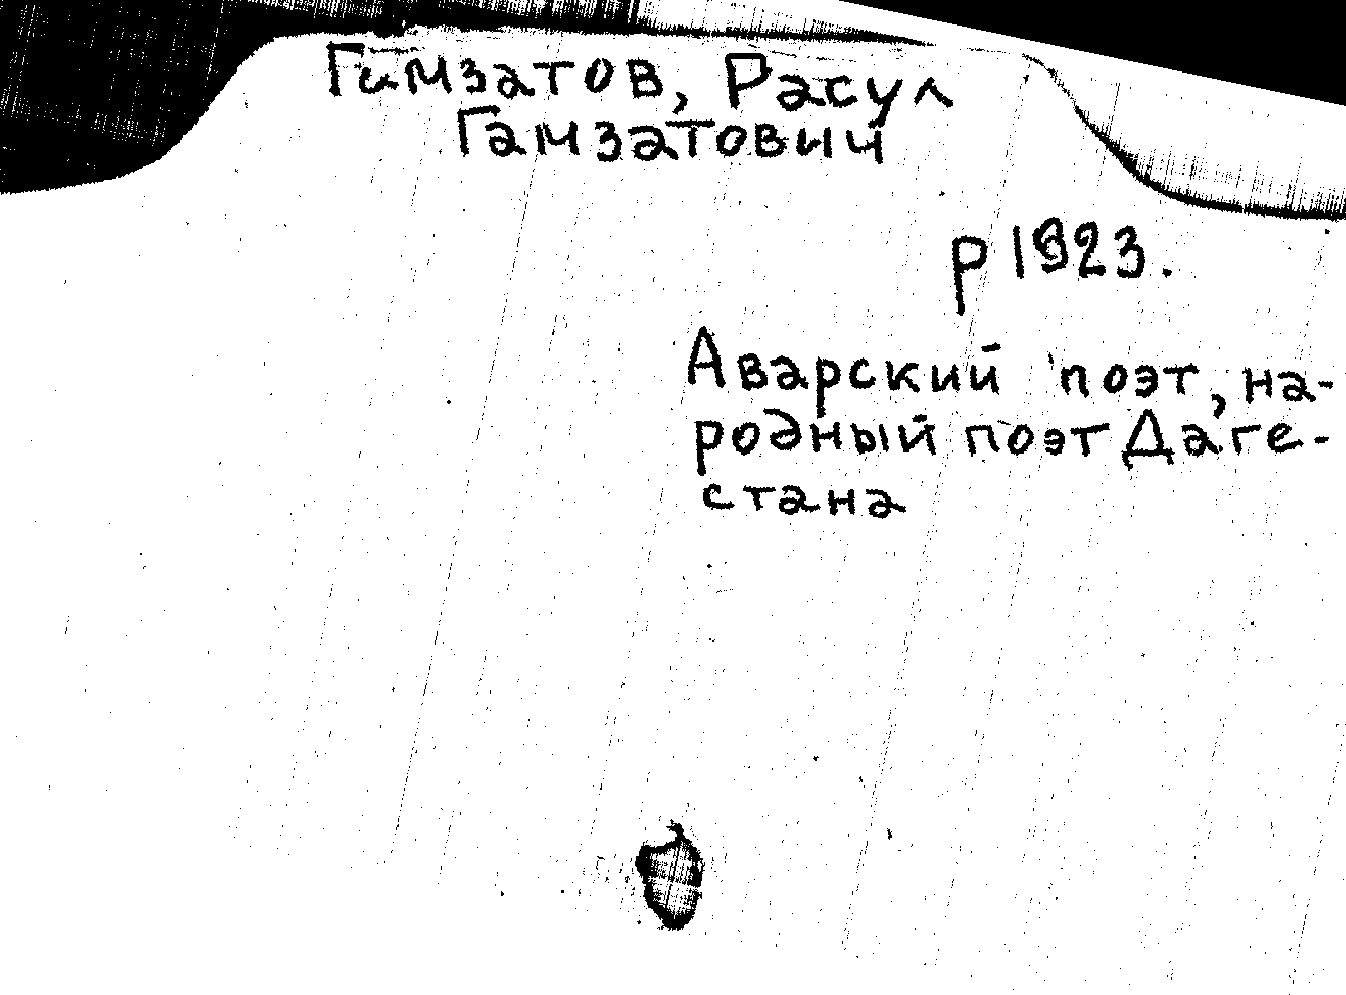 Гамзатов, Расул
Гамзатович
р 1923.
Аварский поэт, на-
родный поэт Даге-
стана